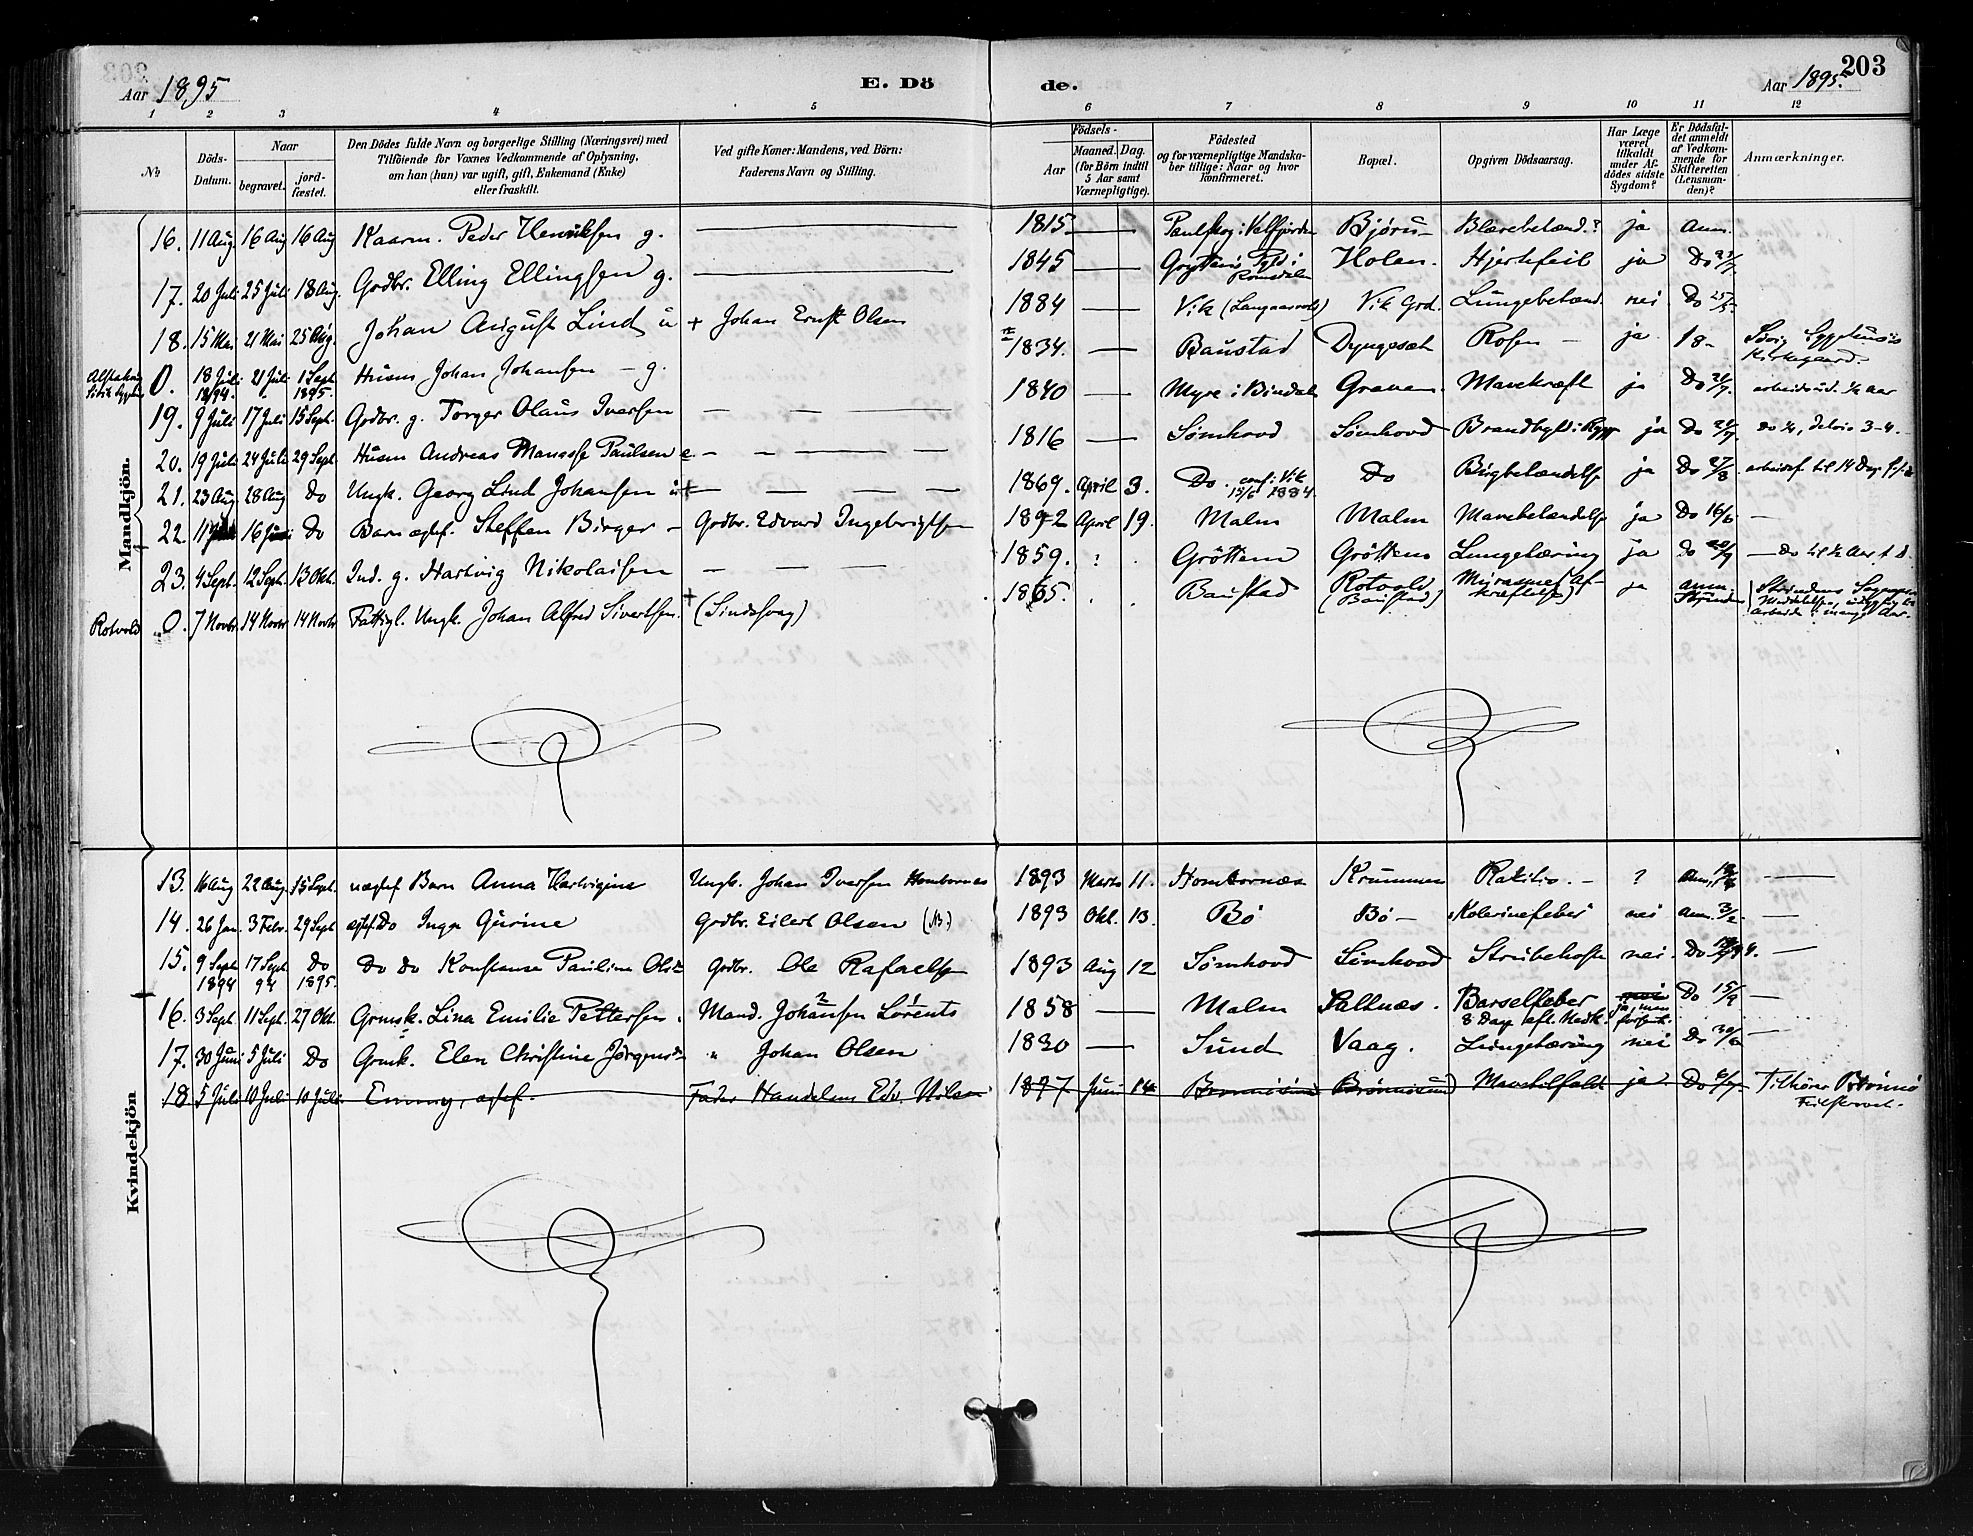 203
Aar 1895 E. Dö de. Aar 1895.
1 2 3 4 5 6 7 8 9 10 11 12
No
Döds-Datum.
Naar
begravet. jord-fæstet.
Den Dödes fulde Navn og borgerlige Stilling (Næringsvei) med
Tilföiende for Voxnes Vedkommende af Oplysning,
om han (hun) var ugift, gift, Enkemand (Enke)
eller fraskilt.
Ved gifte Koner: Mandens, ved Börn:
Faderens Navn og Stilling.
Födsels-
Aar Maaned. Dag.
(for Börn indtil
5 Aar samt
Værnepligtige).
Födested
og for værnepligtige Mandska-
ber tillige: Naar og hvor
konfirmeret.
Bopæl.
Opgiven Dödsaarsag.
Har Læge
været
tilkaldt
under Af-
dödes sidste
Sygdom?
Er Dödsfal-
det anmeldt
af Vedkom-
mende for
Skifteretten
(Lensman-
den)?
Anmærkninger.
Mandkjön.
16. 11 Aug 16 Aug 16 Aug Kaarm. Peder Henriksen g. 1815 Paulskog i Velfjorden Bjøru Blærebetænd.? ja Anm.
17. 20 Juli 25 Juli 18 Aug. Grdbr. Elling Ellingsen g. 1845 Romsdalen Holan. Hjertefeil ja Do
18. 15 Mai 21 Mai 25 Aug. Johan August Lind u + Johan Ernst Olsen 1884 Vik Vik Grd. Lungebetænd. nei Do 25/5
0. 18 Juli 1894. 21 Juli 1 Sept. 1895. Husm Johan Johansen g. 1834. Baustad Dyngesæt Rosen ja 18 Kirkegaard.
19. 9 Juli 17 Juli 15 Sept. Grdbr. g. Torger Olaus Iversen 1840 Myre i Bindal Graven. Mavekræft ja Do
20. 19 Juli 24 Juli 29 Sept. Husm Andreas Manasse Paulsen e 1816 Sømhovd Sømhovd ja Do
21. 23 Aug 28 Aug Do Ungk. Georg Lind Johansen u + 1869. April 3. Do. conf. Vik 15/6 1884. Do Bugbetændelse ja Do 27/8
22. 11 Juni 16 Juni Do Barn ægtef. Steffen Birger Grdbr. Edvard Ingebrigtsen 1892 April 19. Malm Malm Mavebetændelse ja Do 16/6
23. 4 Sept. 12 Sept. 13 Okt. Ind. g. Hartvig Nikolaisen 1859. ? Gröttem Gröttem Lungetæring ja Do
Rotvold 0. 7 Novbr 14 Novbr 14 Novbr Fattigl. Ungk. Johan Alfred Sivertsen. + (Sindssvag) 1865. Baustad Rotvold (Baustad) ja anm.
Kvindekjön
13. 16 Aug 22 Aug. 15 Sept. uægtef Barn Anna Hartvigine Ungk. Johan Iversen Hombornæs 1893 Marts 11. Hombornæs Krummen Rakitis. ? Anm.
14. 26 Jan. 3 Febr. 29 Sept ægtef. Do Inga Gurine Grdbr. Eilert Olsen 1893 Okt. 13. Bö Bö Kolerinefeber nei Anm. 3/2
15. 9 Sept. 1894 17 Sept. 94 Do 1895. Do do Konstanse Pauline Grdbr. Ole Rafaelsen 1893 Aug 12 Sømhovd Sømhovd Strubehoste nei. Do
16. 3 Sept. 11 Sept. 27 Okt. Grmsk. Lina Emilie Pettersen. Mand. Johansen Lorents 1858 Malm Saltnæs. Barselfeber 8 Dage eft. Nedk. Do 15/9
17. 30 Juni 5 Juli Do Grmk. Elen Christine " Johan Olsen 1830 Sund Vaag. Lungetæring nei Do 30/6
18 5 Juli 10 Juli 10 Juli Emmy, ægtef. Fader Handelsm Edv. Nilsen 1877 Juni 14 Brönnösund Brönnösund Mavetilfælde ja Do Tilhörer Brönnö